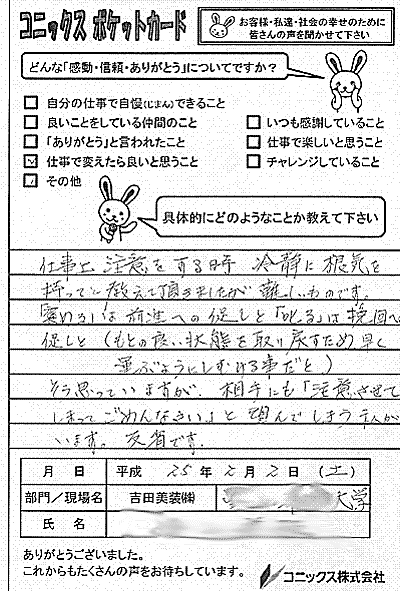 コニックス ポケットカード
お客様・私達・社会の幸せのために
皆さんの声を聞かせて下さい
どんな「感動・信頼・ありがとう」についてですか？
自分の仕事で自慢(じまん)できること
良いことをしている仲間のこと
いつも感謝していること
「ありがとう」と言われたこと
仕事で楽しいと思うこと
仕事で変えたら良いと思うこと
チャレンジしていること
その他
具体的にどのようなことか教えて下さい
仕事上 注意をする時 冷静に根気を
持って 教えて頂きましたが 難しいものです。
褒めるは前進への促しと「叱る」は挽回へ
促しと（もとの良い状態を取り戻すため早く
運ぶようにしむける事だと）
そう思っていますが、相手にも「注意させて
しまってごめんなさい」と 頭んでしまう 主人が
います。反省です。
月 日 平成 25 年 2 月 2 日 （土）
部門／現場名 吉田美装㈱ 大学
氏 名
ありがとうございました。
これからもたくさんの声をお待ちしています。
コニックス株式会社